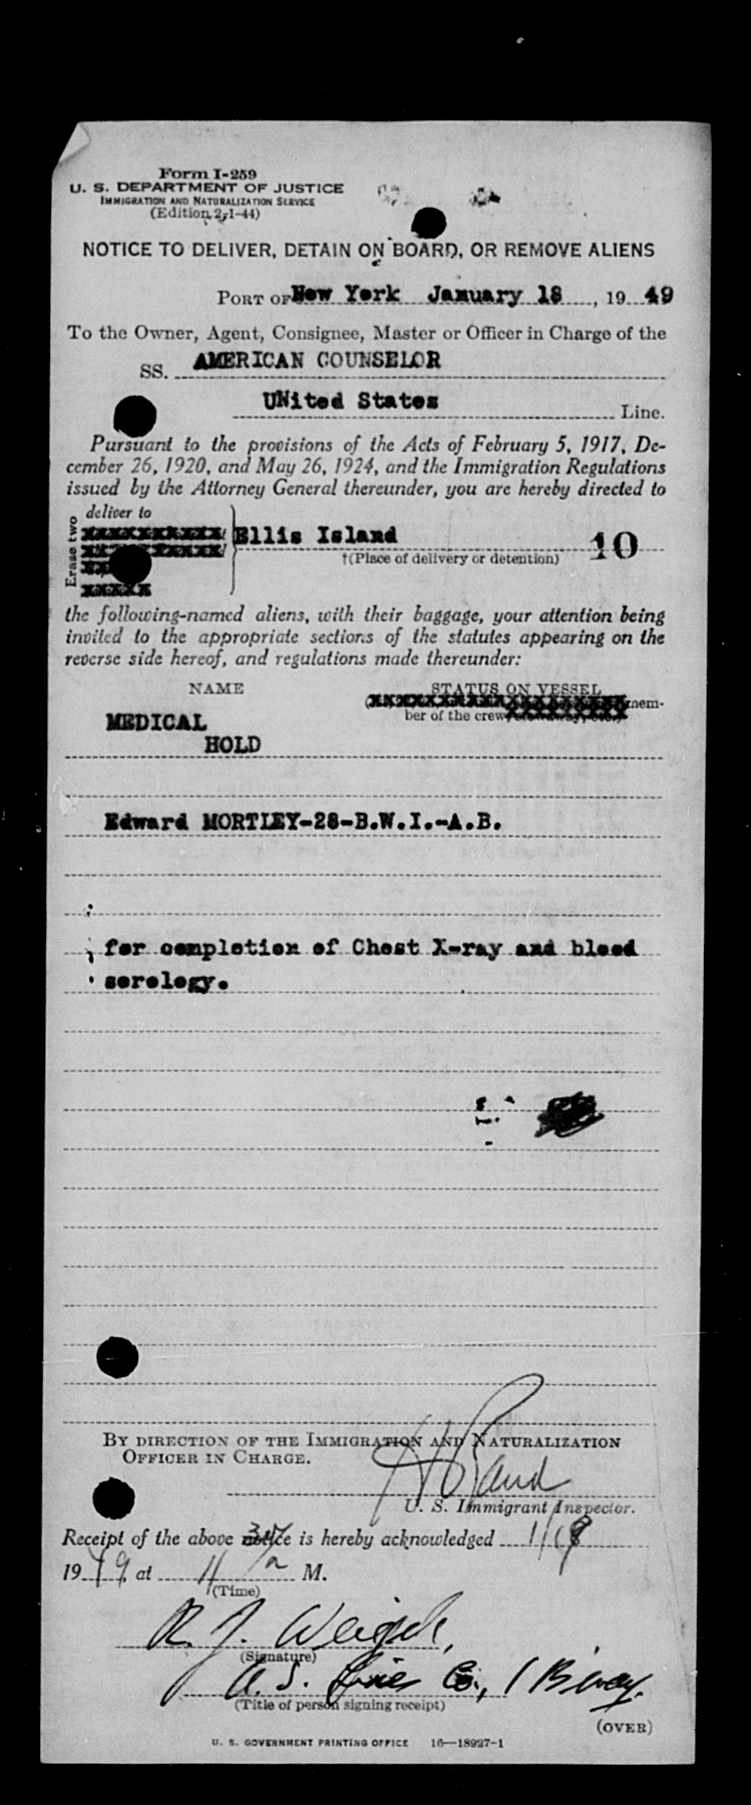 Form I-259
U. S. DEPARTMENT OF JUSTICE
IMMIGRATION AND NATURALIZATION SERVICE
(Edition 2-1-44)
NOTICE TO DELIVER, DETAIN ON BOARD, OR REMOVE ALIENS
PORT OF New York January 18, 1949
To the Owner, Agent, Consignee, Master or Officer in Charge of the
SS. AMERICAN COUNSELOR
UNited States Line.
Pursuant to the provisions of the Acts of February 5, 1917, De-
cember 26, 1920, and May 26, 1924, and the Immigration Regulations
issued by the Attorney General thereunder, you are hereby directed to
Erase two
deliver to
Ellis Island 10
†(Place of delivery or detention)
the following-named aliens, with their baggage, your attention being
invited to the appropriate sections of the statutes appearing on the
reverse side hereof, and regulations made thereunder:
NAME STATUS ON VESSEL
mem-
ber of the crew
MEDICAL
HOLD
Edward MORTLEY-28-B.W.I.-A.B.
for completion of Chest X-ray and blood
serology.
BY DIRECTION OF THE IMMIGRATION AND NATURALIZATION
OFFICER IN CHARGE.
U. S. Immigrant Inspector.
Receipt of the above notice is hereby acknowledged 1/18
1949, at 11 a M.
(Time)
R. J.
(Signature)
U.S. Lines Co., 1 B'way.
(Title of person signing receipt)
(OVER)
U. S. GOVERNMENT PRINTING OFFICE 16—18927-1